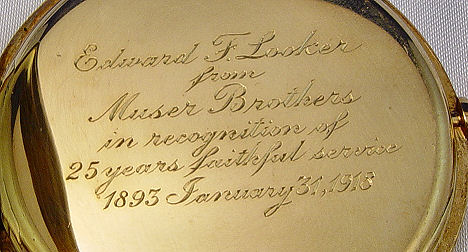 Edward F. Looker
from
Muser Brothers
in recognition of
25 years faithful service
1893 January 31, 1918